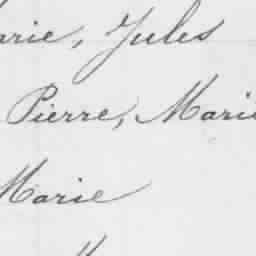 arie, Jules
Pierre, Mari
Marie